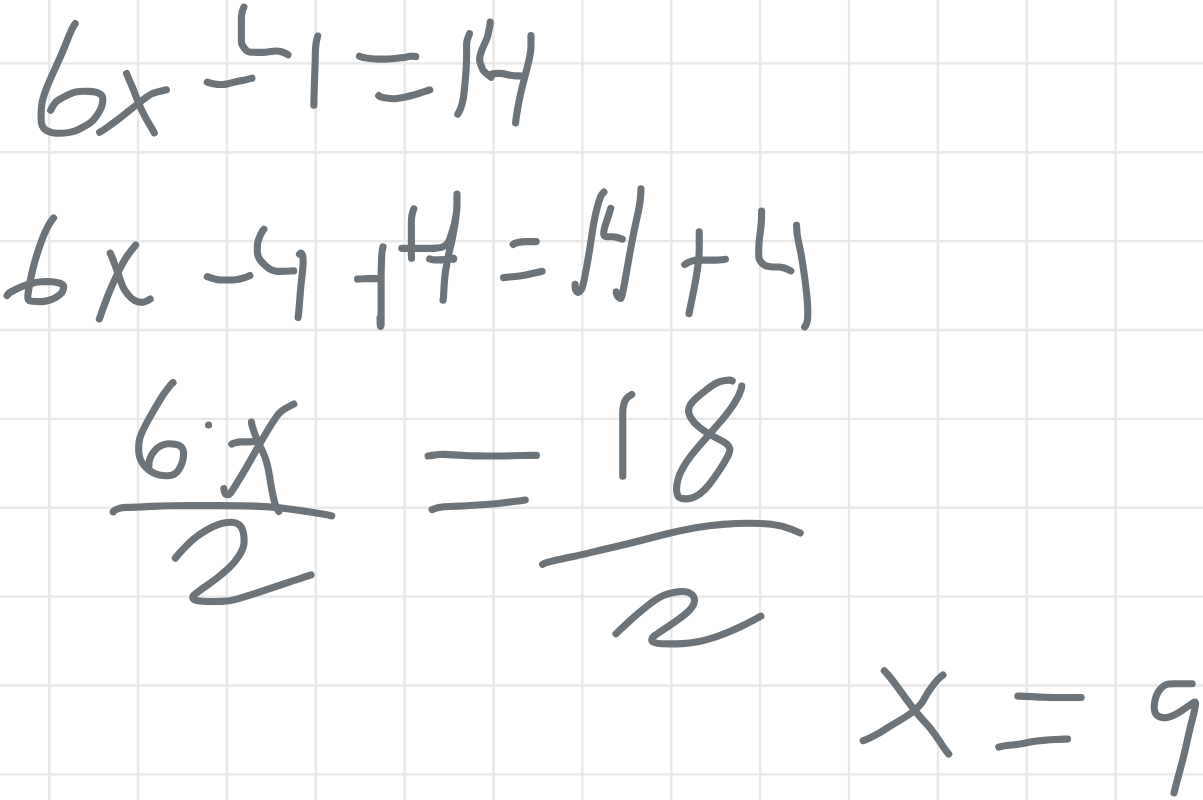 6x - 4 = 14
6x - 4 + 4 = 14 + 4
6·x/2 = 18/2
x = 9